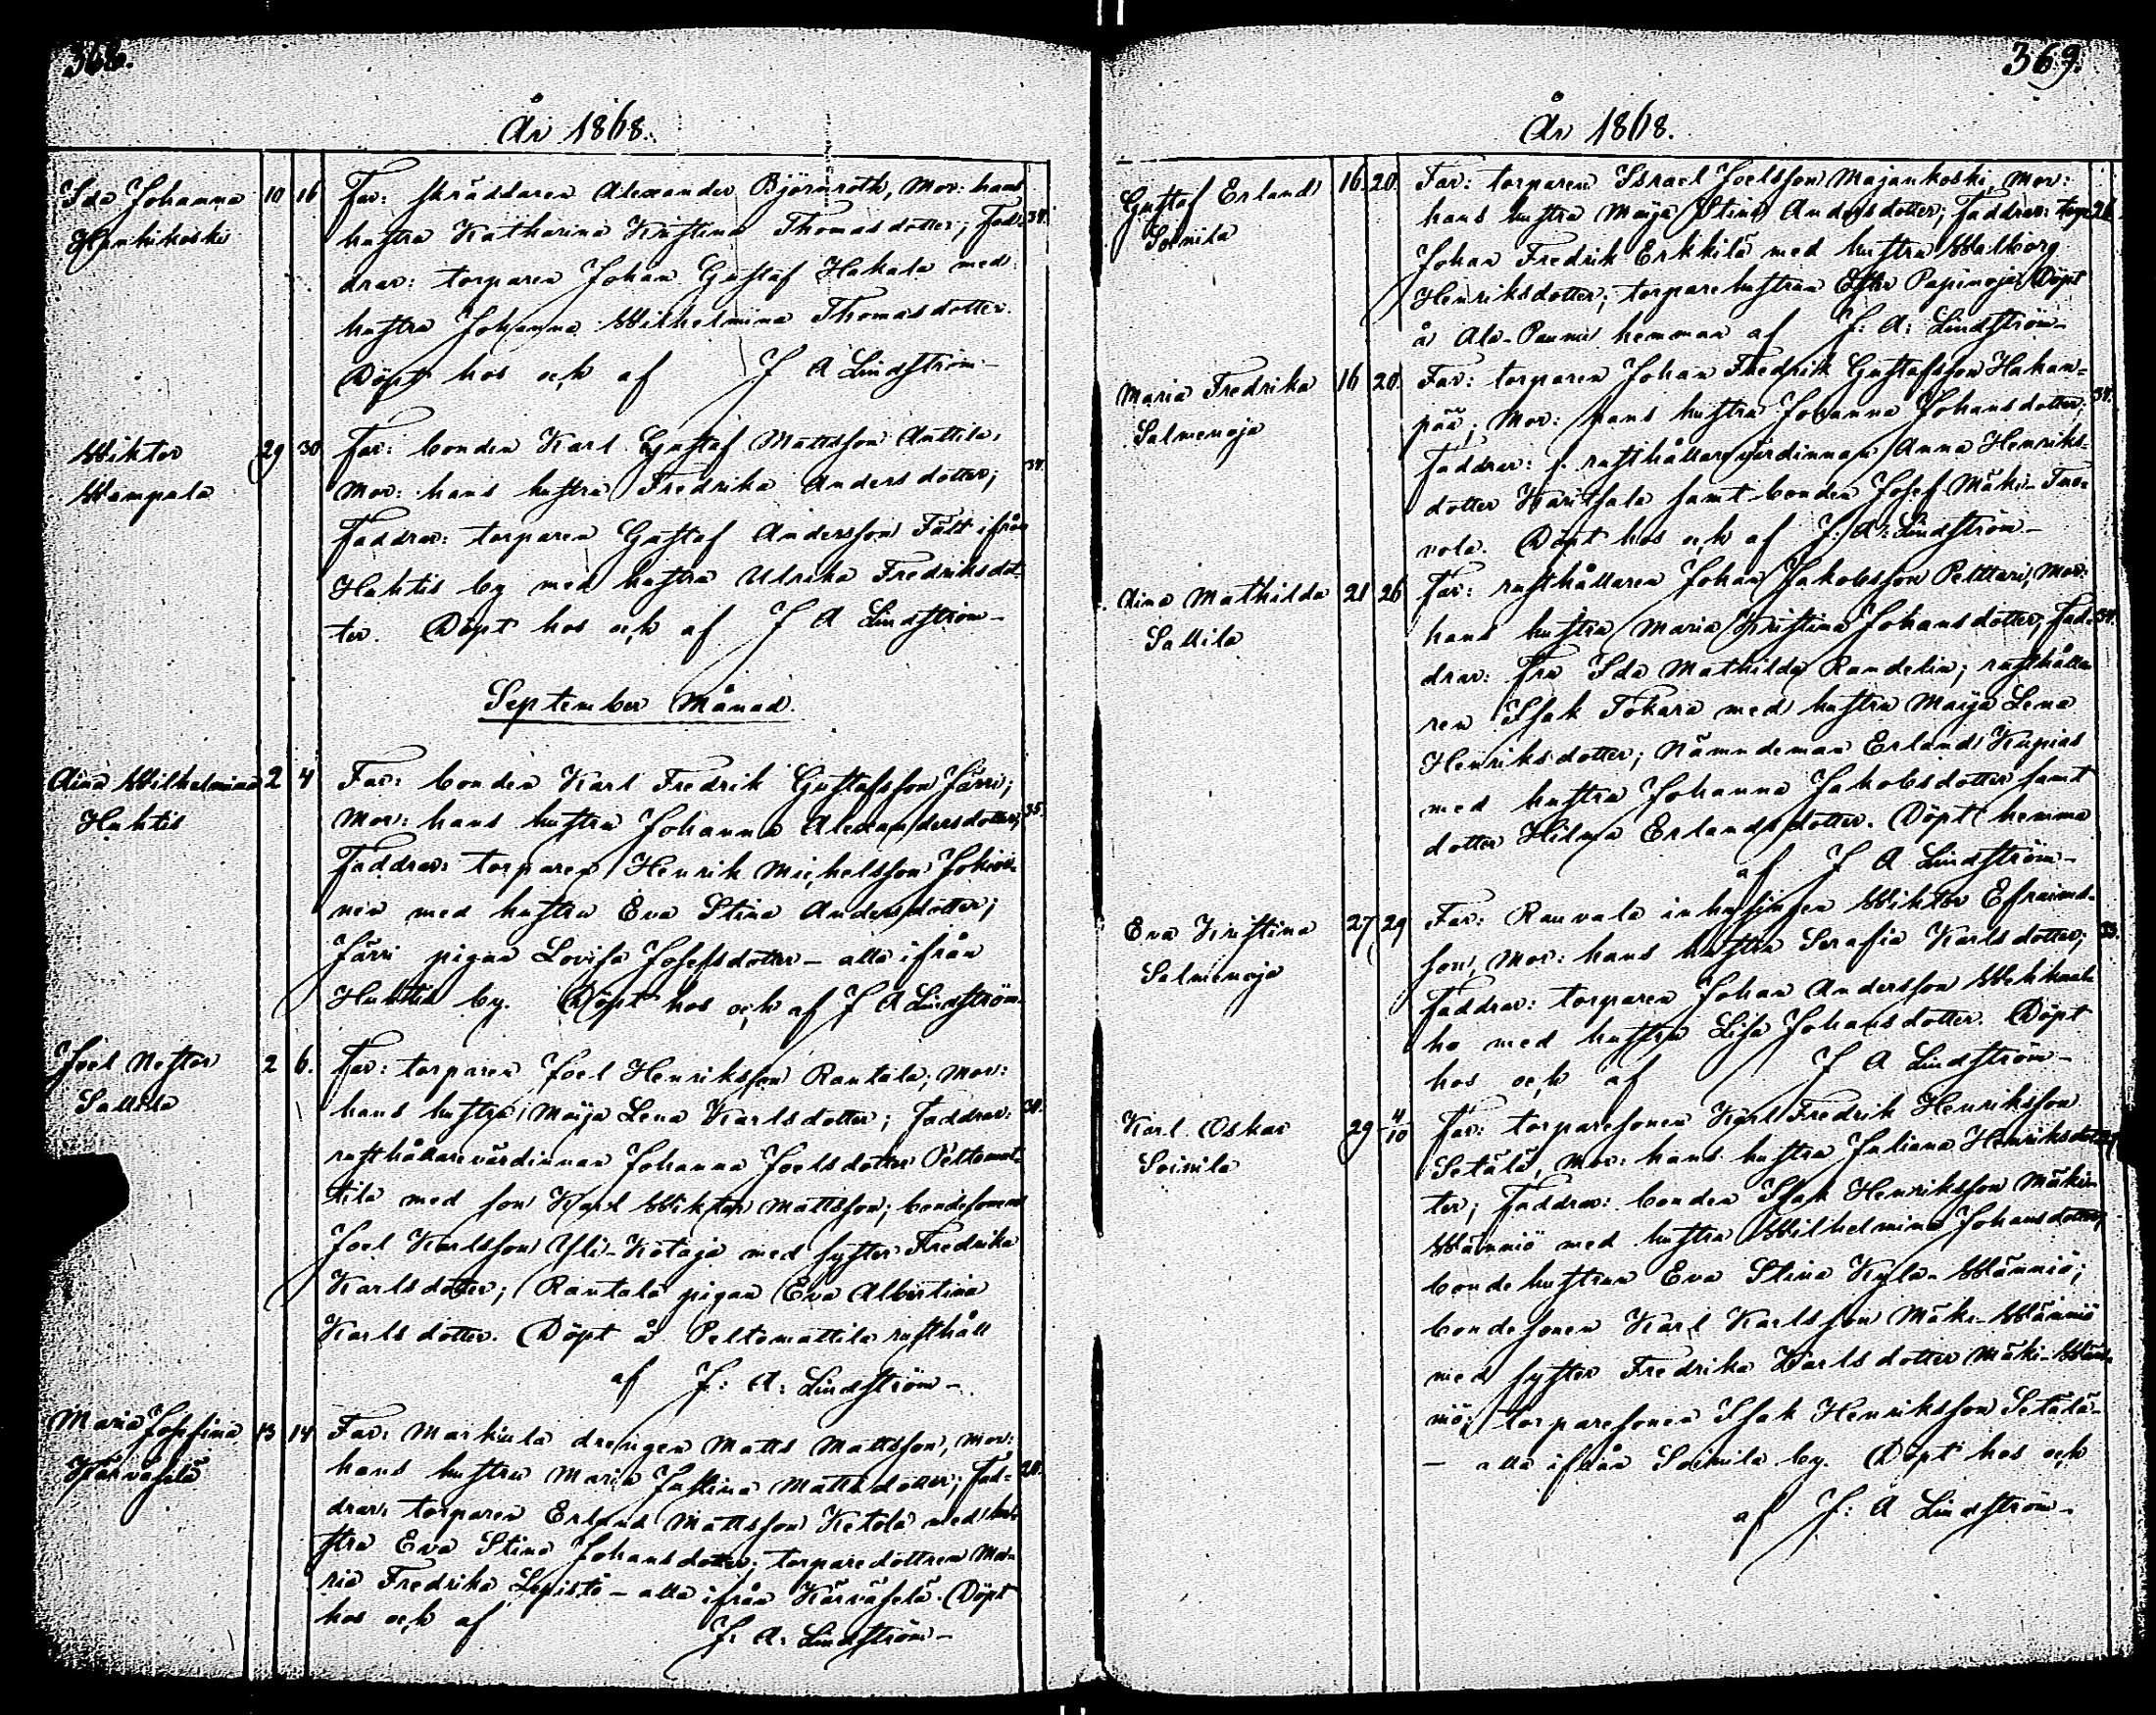 368.
År 1868.
Ida Johanna 10 16 Far: skräddaren Alexander Björnroth, Mor: hans
Hankikoski hustru Katharina Kristina Thomasdotter; Fad- 34.
drar: torparen Johan Gustaf Hakala med
hustru Johanna Wilhelmina Thomasdotter.
Döpt hos och af J A Lindström-
Wiktor 29 30 Far: bonden Karl Gustaf Mattsson Anttila,
Wampula Mor: hans hustru Fredrika Andersdotter; 34.
Faddrar: torparen Gustaf Andersson Fält ifrån
Huhtis by med hustru Ulrika Fredriksdot-
ter. Döpt hos och af J A Lindström-
September Månad.
Aina Wilhelmina 2 4 Far: bonden Karl Fredrik Gustafsson Järri;
Huhtis Mor: hans hustru Johanna Alexandersdotter; 35.
Faddrar: torparen Henrik Michelsson Jokioi-
nen med hustru Eva Stina Andersdotter;
Järri pigan Lovisa Josefsdotter - alla ifrån
Huhtis by. Döpt hos och af J A Lindström
Joel Nestor 2 6. Far: torparen Joel Henriksson Rantala; Mor:
Sallila hans hustru Maija Lena Karlsdotter; Faddrar: 30.
rusthållarevärdinnan Johanna Joelsdotter Peltomat-
tila med son Karl Wiktor Mattsson; bondesonen
Joel Karlsson Yli-Kotaja med syster Fredrika
Karlsdotter; Rantala pigan Eva Albertina
Karlsdotter. Döpt å Peltomattila rusthåll
af J: A: Lindström-
Maria Josefina 13 14 Far: Markula drengen Matts Mattsson, Mor:
Kärväselä hans hustru Maria Justina Mattsdotter; Fad- 20.
drar: torparen Erland Mattsson Ketola med hu-
stru Eva Stina Johansdotter; torparedottren Ma-
ria Fredrika Lepistö - alla ifrån Kärväselä. Döpt
hos och af J: A: Lindström-
369.
År 1868.
Gustaf Erland 16 20 Far: torparen Israel Joelsson Majankoski, Mor:
Soinila hans hustru Maija Stina Andersdotter; Faddrar: torp. 26.
Johan Fredrik Erkkilä med hustru Walborg
Henriksdotter; torparehustrun Ester Papinoja. Döpt
å Ala-Paunu hemman af J: A: Lindström-
Maria Fredrika 16 20. Far: torparen Johan Fredrik Gustafsson Hakan-
Salmenoja pää; Mor: hans hustru Johanna Johansdotter; 34.
Faddrar: f. rusthållarevärdinnan Anna Henriks-
dotter samt bonden Josef Mäki-Tuo-
vola. Döpt hos och af J: A: Lindström-
Aina Mathilda 21 26 Far: rusthållaren Johan Jakobsson Pelttari; Mor:
Sallila hans hustru Maria Kristina Johansdotter; Fad- 34.
drar: Fru Ida Mathilda Randelin; rusthålla-
ren Isak Tokara med hustru Maija Lena
Henriksdotter; Nämndeman Erland Kupias
med hustru Johanna Jakobsdotter samt
dotter Hilma Erlandsdotter. Döpt hemma
af J A Lindström-
Eva Kristina 27 29 Far: Rauvala inhysingen Wiktor Efraims-
Salmenoja son, Mor: hans hustru Serafia Karlsdotter; 33.
Faddrar: torparen Johan Andersson
ho med hustru Lisa Johansdotter. Döpt
hos och af J A Lindström-
Karl Oskar 29 4/10 Far: torparesonen Karl Fredrik Henriksson
Soinila Setälä, Mor: hans hustru Juliana Henriksdot-
ter; Faddrar: bonden Isak Henriksson Mäki-
Wänniö med hustru Wilhelmina Johansdotter;
bondehustrun Eva Stina Kylä-Wänniö;
bondesonen Karl Karlsson Mäki-Wänniö
med syster Fredrika Karlsdotter Mäki-Wän-
niö; torparesonen Isak Henriksson Setälä-
- alla ifrån Soinila by. Döpt hos och
af J: A Lindström-